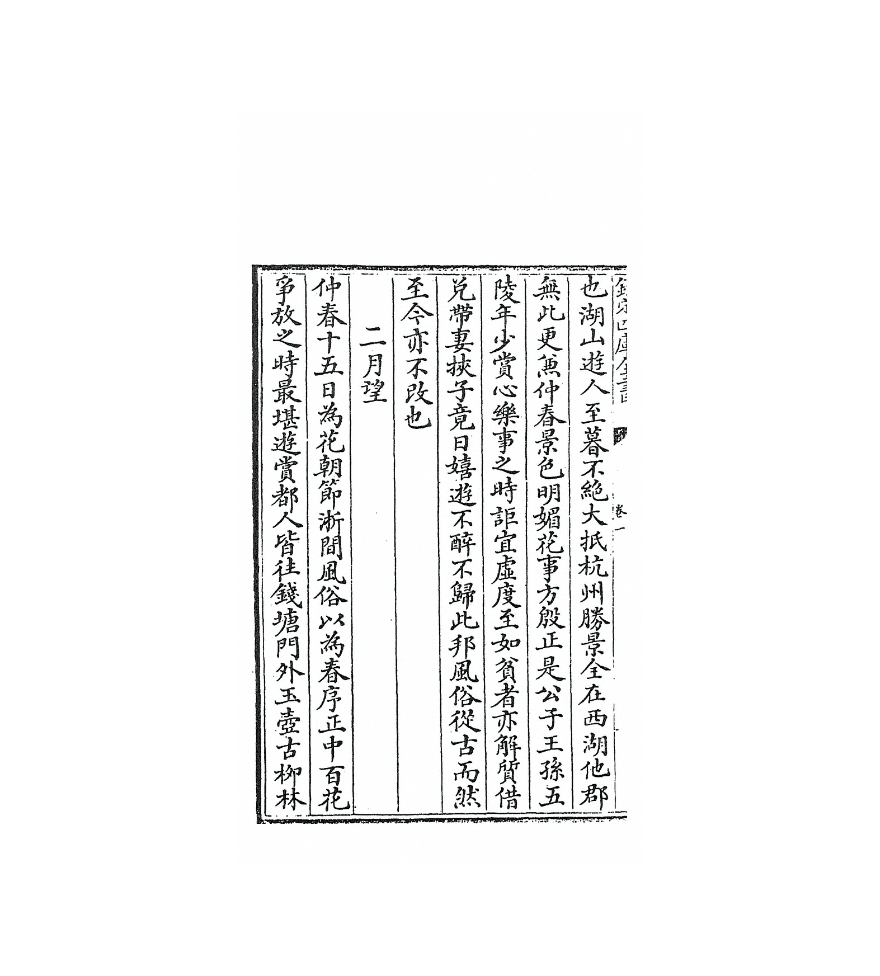 欽定四庫全書
卷一
也湖山遊人至暮不絶大抵杭州勝景全在西湖他郡
無此更兼仲春景色明媚花事方殷正是公子王孫五
陵年少賞心樂事之時詎宜虛度至如貧者亦解質借
兑帶妻挾子竟日嬉遊不醉不歸此邦風俗從古而然
至今亦不改也
二月望
仲春十五日為花朝節浙間風俗以為春序正中百花
爭放之時最堪遊賞都人皆往錢塘門外玉壺古柳林